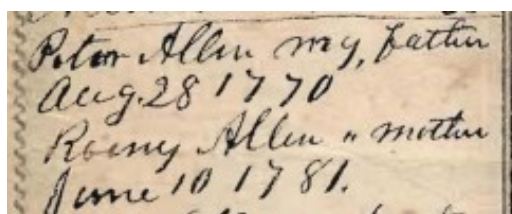 Peter Allen my, father
Aug. 28 1770
Allen " mother
June 10 1781.